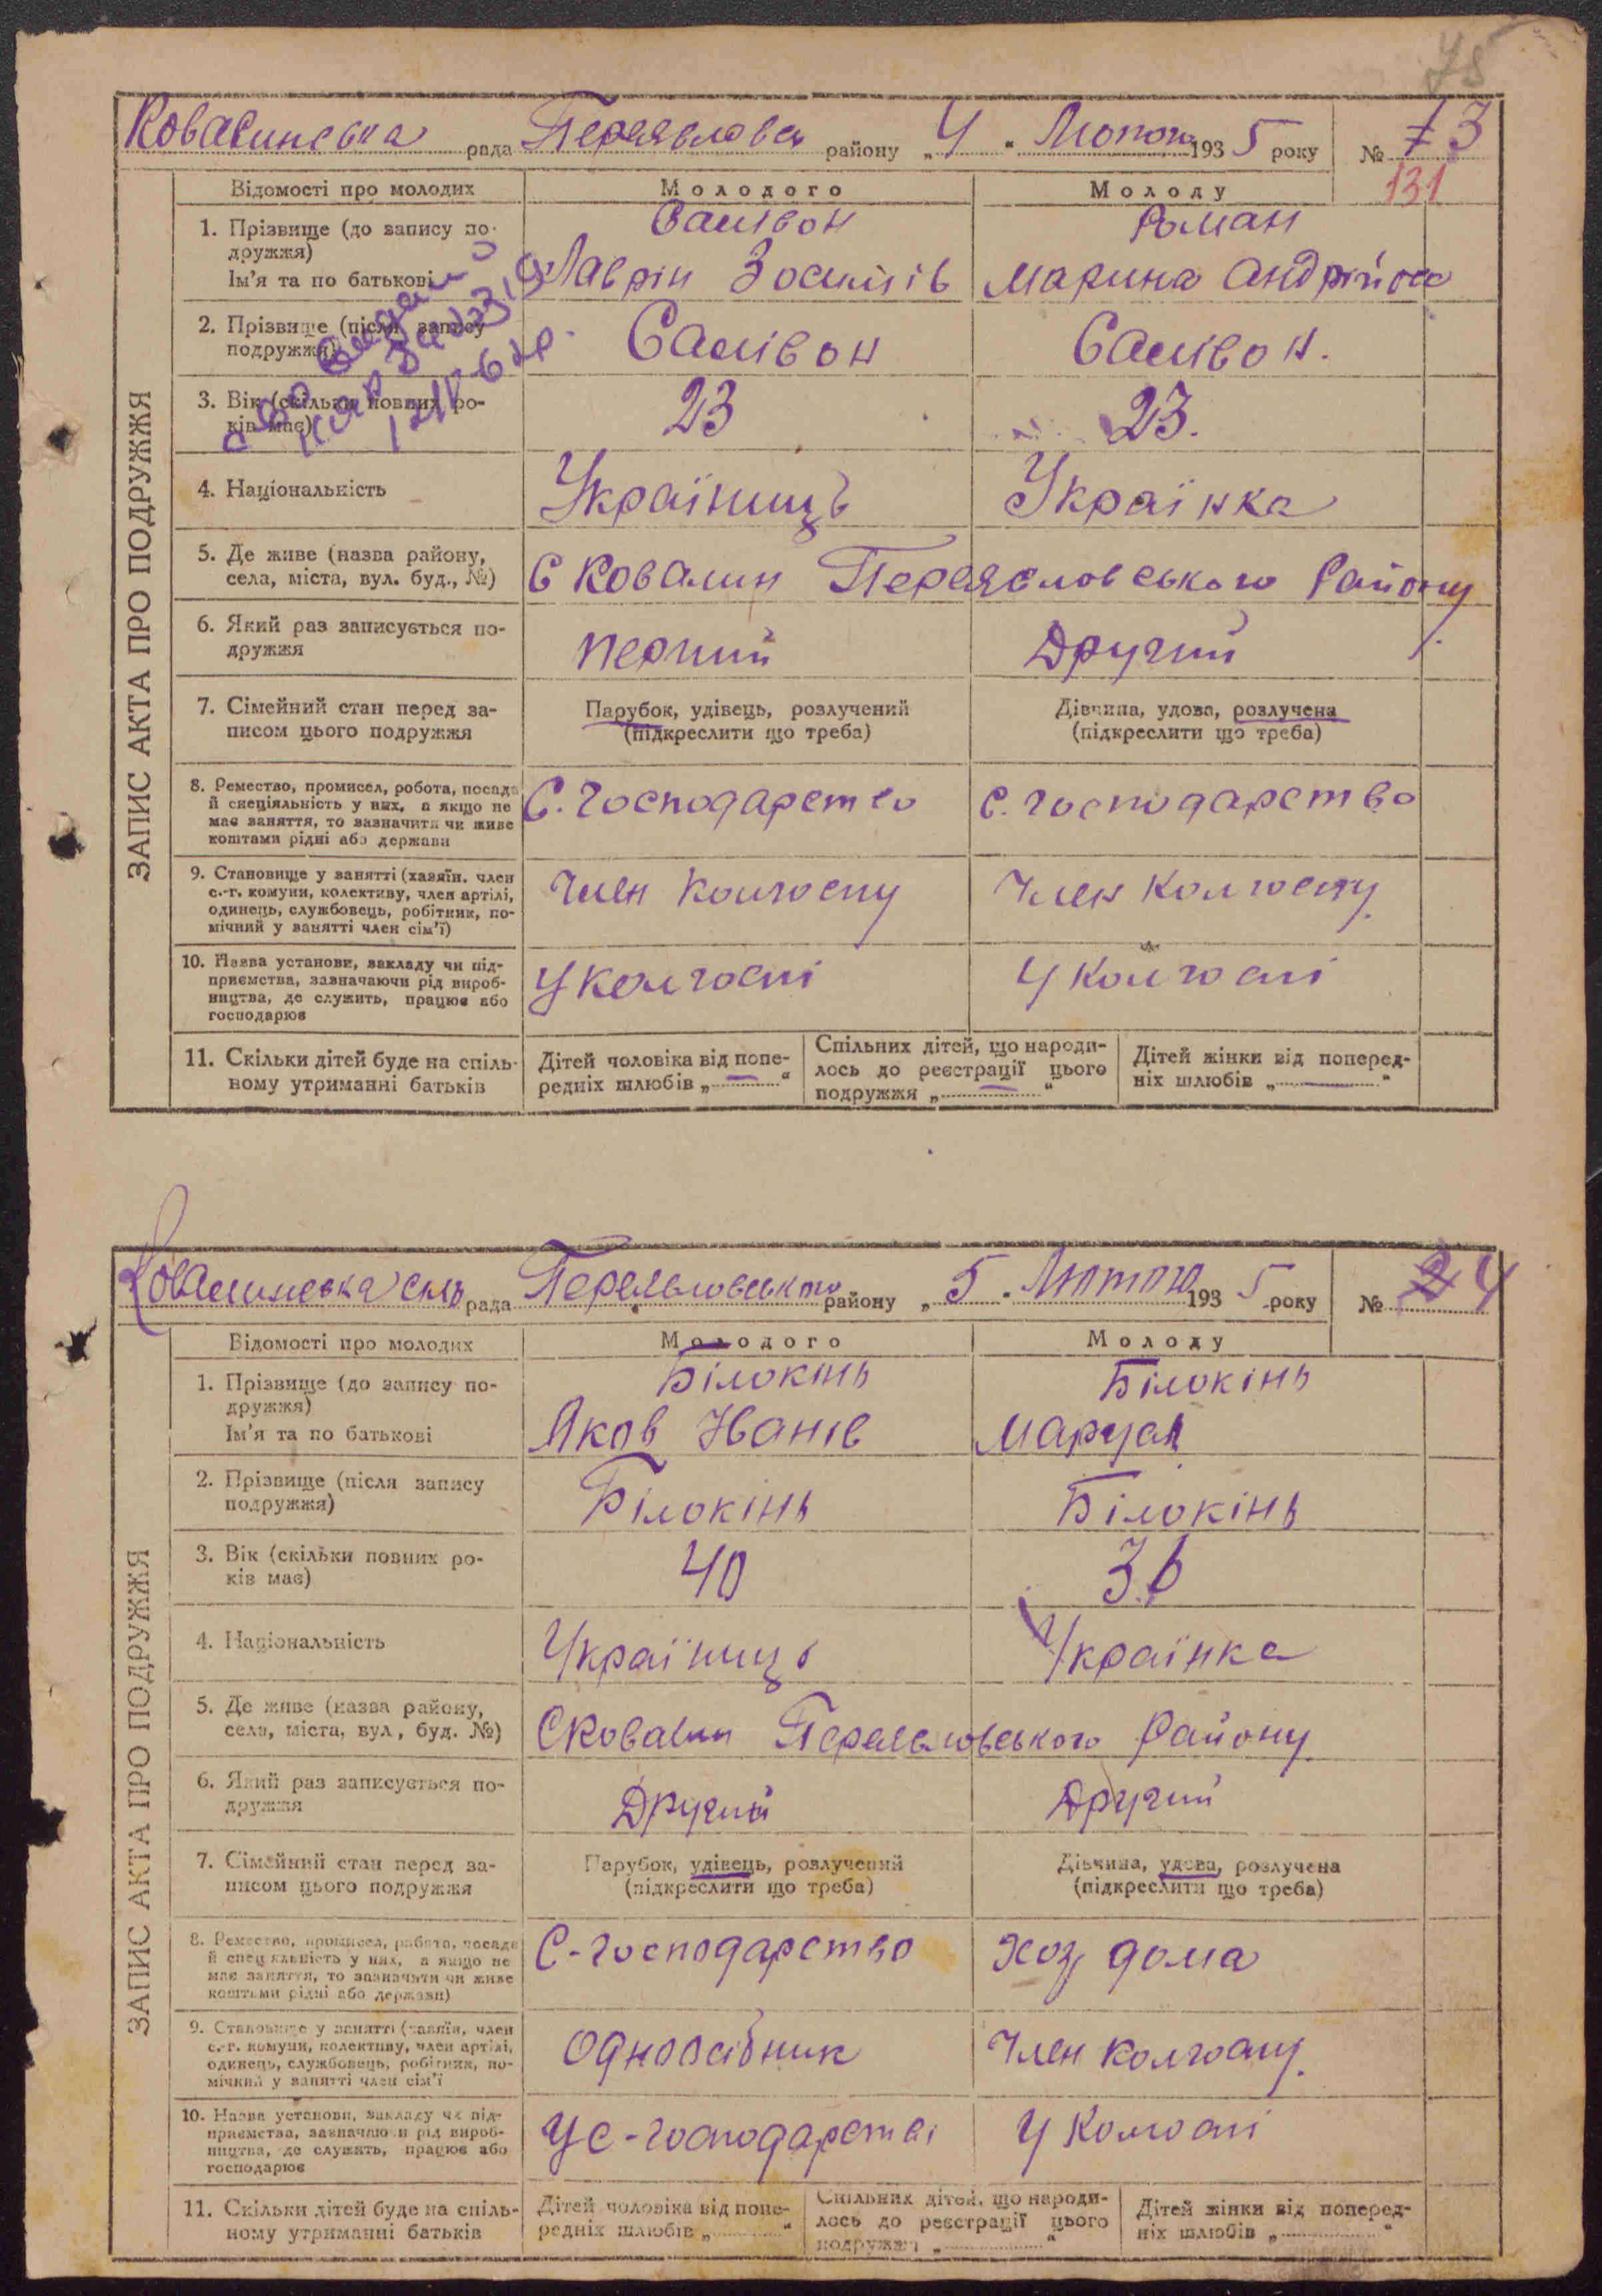 75
Ковалинська рада Переяславськ району „4" Лютого 1935 року № 3
131
ЗАПИС АКТА ПРО ПОДРУЖЖЯ
Відомості про молодих Молодого Молоду
1. Прізвище (до запису по-
дружжя)
Самвон Роман
Ім'я та по батькові Лаврін Зосимів Марина Андріївн
2. Прізвище (після запису
подружжя)
Самвон Самвон.
3. Вік (скільки повних ро-
ків має)
23 23.
4. Національність Україниць Українка
5. Де живе (назва району,
села, міста, вул. буд., №)
С Ковалин Переясловського Району
6. Який раз записується по-
дружжя
перший Другий
7. Сімейний стан перед за-
писом цього подружжя
Парубок, удівець, розлучений
(підкреслити що треба)
Дівчина, удова, розлучена
(підкреслити що треба)
8. Ремество, промисел, робота, посада
й спеціяльність у них, а якщо не
має заняття, то зазначити чи живе
коштами рідні або держави
С. господарство с. господарство
9. Становище у занятті (хазяїн, член
с.-г. комуни, колективу, член артілі,
одинець, службовець, робітник, по-
мічний у занятті член сім'ї)
Член колгоспу Член колгоспу
10. Назва установи, закладу чи під-
приємства, зазначаючи рід вироб-
ництва, де служить, працює або
господарює
У колгоспі У колгоспі
11. Скільки дітей буде на спіль-
ному утриманні батьків
Дітей чоловіка від попе-
редніх шлюбів „ — "
Спільних дітей, що народи-
лось до реєстрації цього
подружжя „ — "
Дітей жінки від поперед-
ніх шлюбів „ — "
Ковалинська сель рада Переяславського району „5" Лютого 1935 року № 4
ЗАПИС АКТА ПРО ПОДРУЖЖЯ
Відомості про молодих Молодого Молоду
1. Прізвище (до запису по-
дружжя)
Білокінь Білокінь
Ім'я та по батькові Яков Іванів Маруся
2. Прізвище (після запису
подружжя)
Білокінь Білокінь
3. Вік (скільки повних ро-
ків має)
40 36
4. Національність Україниць Українка
5. Де живе (назва району,
села, міста, вул, буд. №)
С Ковалин Переясловського Району
6. Який раз записується по-
дружжя
Другий Другий
7. Сімейний стан перед за-
писом цього подружжя
Парубок, удівець, розлучений
(підкреслити що треба)
Дівчина, удова, розлучена
(підкреслити що треба)
8. Ремество, промисел, робота, посада
й спеціяльність у них, а якщо не
має заняття, то зазначити чи живе
коштами рідні або держави)
С-господарство Хоз дома
9. Становище у занятті (хазяїн, член
с.-г. комуни, колективу, член артілі,
одинець, службовець, робітник, по-
мічний у занятті член сім'ї
Одноосібник Член колгоспу
10. Назва установи, закладу чи під-
приємства, зазначаючи рід вироб-
ництва, де служить, працює або
господарює
У с-господарстві У колгоспі
11. Скільки дітей буде на спіль-
ному утриманні батьків
Дітей чоловіка від попе-
редніх шлюбів „ "
Спільних дітей, що народи-
лось до реєстрації цього
подружжя „ "
Дітей жінки від поперед-
ніх шлюбів „ "